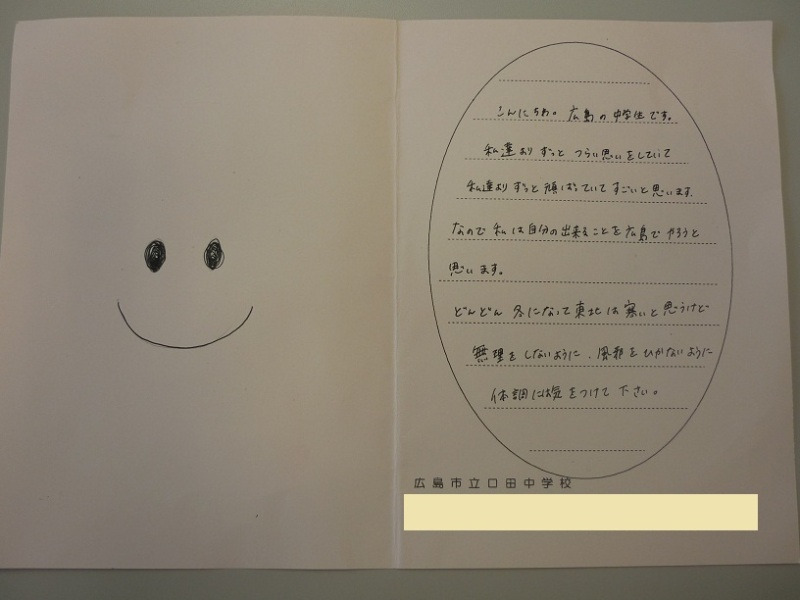 こんにちわ。広島の中学生です。
私達より ずっと つらい思いをしていて
私達より ずっと 頑ばっていて すごいと思います.
なので 私は自分の出来ることを広島でやろうと
思います。
どんどん 冬になって東北は寒いと思うけど
無理をしないように、風邪をひかないように
体調には気をつけて下さい。
広島市立口田中学校